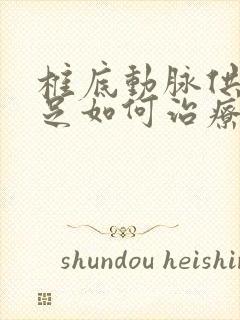 柱底動脉供
足如何治療
shundou heishin